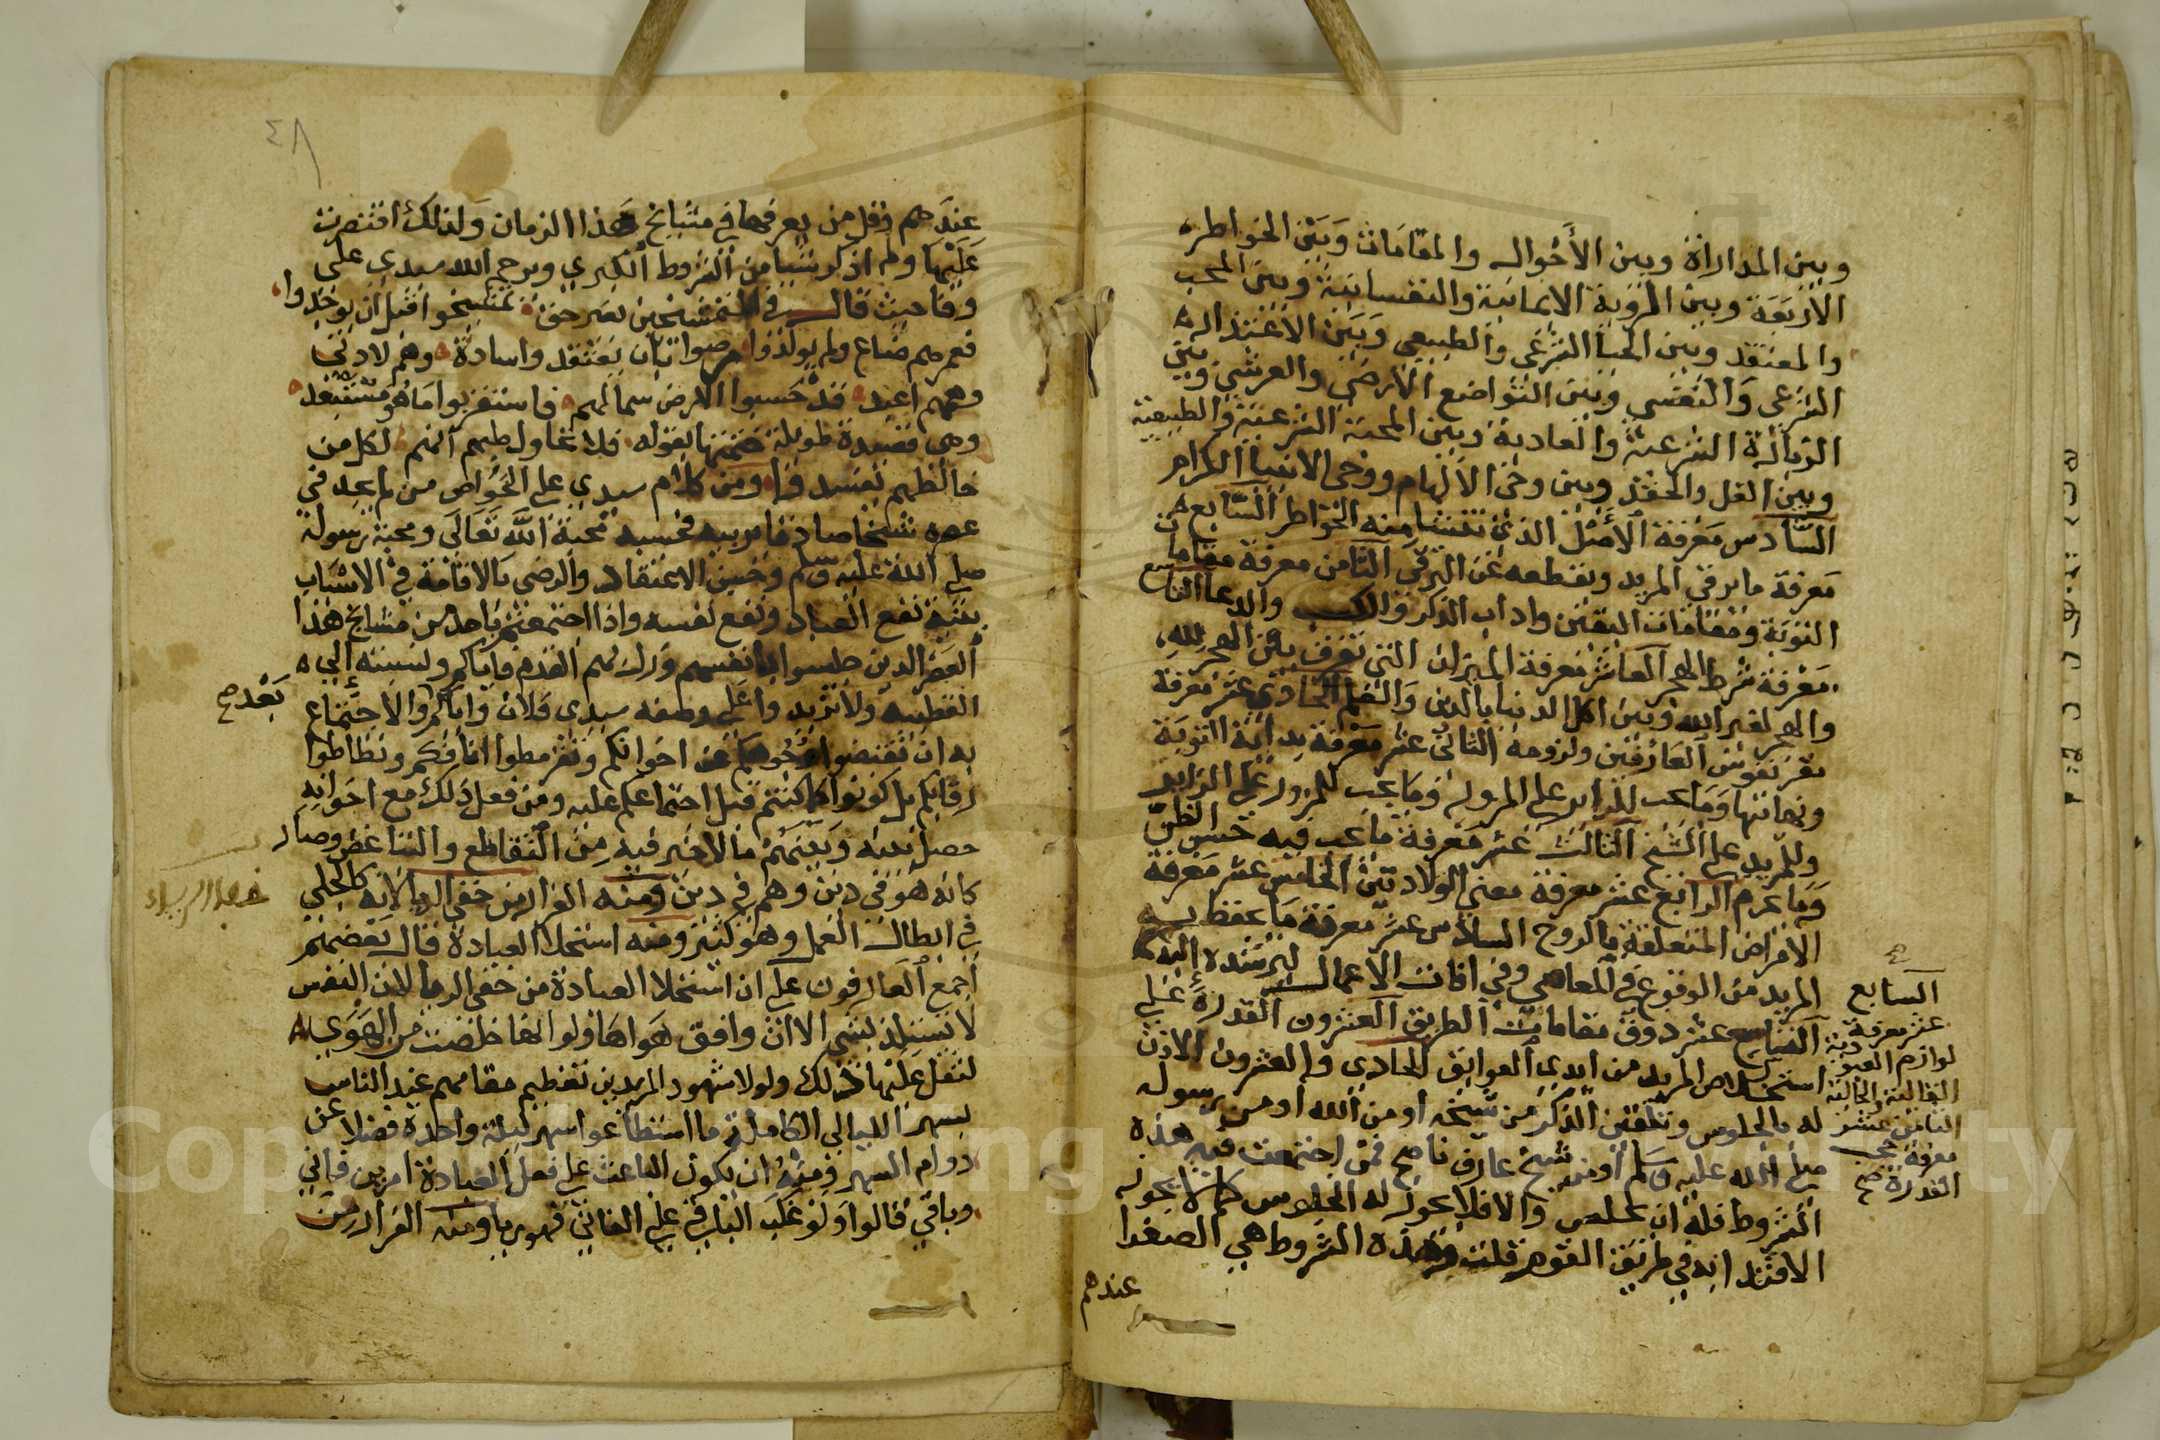 وبين المداراة وبين الأحوال والمقامات وبين الخواطره
الاربعة وبين الرؤية الايمانية والنفسانية وبين المحب
والمعتقد وبين الحيا الشرعي والطبيعي وبين الاعتذاره
الشرعي والنفسي وبين التواضع الارضي والعرشي وبين
الزيارة الشرعية والعادية وبين المحبة الشرعية والطبيعية
وبين الغل والحقد وبين وحي الالهام ووحي الانبيا الكرام
السادس معرفة الأصل الذي تنشا منه الخواطر السابع
معرفة ما يرقي المريد ويقطعه عن الترقي الثامن معرفة مقامات
التوبة ومقامات اليقين واداب الذكر والكسب والدعا التاسع
معرفة شرط الهجر العاشر معرفة الميزان التي تعرف بين الهجر لله
والهجر لغير الله وبين اكل الدنيا بالدين والعلم الحادي عشر معرفة
نفوس العارفين ولزومه الثاني عشر معرفة بداية التوبة
ونهايتها وما يجب للزاير على المزور وما يجب للمزور على الزاير
وللمريد على الشيخ الثالث عشر معرفة ما يجب فيه حسن الظن
وما يحرم الرابع عشر معرفة معنى الولادتين الخامس عشر معرفة
الامراض المتعلقة بالروح السادس عشر معرفة ما يحفظ به
المريد من الوقوع في المعاصي وفي افات الاعمال ليرشده اليه
السابع
عشر معرفة
لوازم العبودية
الثامن عشر
معرفة
القدرة صح
التاسع عشر ذوق مقامات الطريق العشرون القدرة على
استخلاص المريد من ايدي العوايق الحادي والعشرون الاذن
له بالجلوس وتلقين الذكر من شيخه أو من الله أو من رسوله
صلى الله عليه وسلم أو من شيخ عارف ناصح فمن اجتمعت فيه هذه
الشروط فله ان يجلس والا فلا يجوز له الجلوس كما لا يجوز
الاقتدا به في طريق القوم قلت وهذه الشروط هي الصغرا
عندهم
٤٨
عندهم وقل من يعرفها في مشايخ هذا الزمان ولذلك اقتصرت
عليها ولم اذكر شيا من الشروط الكبرى ويرحم الله سيدي علي
وفا حيث قال في المتمشيخين بغير حق تمشيخوا قبل ان يوخذوا
فعمرهم ضاع ولم يولدوا رضوا بان يعتقد واسادة وهم لادنى
وهمهم اعبد قد حسبوا الارض سما لهم فاستقربوا ما هو مستبعد
وهي قصيدة طويلة ختمها بقوله فلا تخاولطهم انهم لكل من
خالطهم يفسد وا ومن كلام سيدي علي الخواص من لم يجد في
عصره شيخا صادقا يربيه فحسبه محبة الله تعالى ومحبة رسوله
صلى الله عليه وسلم وحسن الاعتقاد والرضى بالاقامة في الاسباب
بنية نفع العباد ونفع نفسه واذا اجتمعتم باحد من مشايخ هذا
العصر الذين جلسوا بانفسهم وزلت بهم القدم فاياكم ونسبته الى
القطبيه ولا تزيدوا على وصفه سيدي فلان واياكم والاجتماع
بعد صح
به ان تقبضوا وجوهكم عن اخوانكم وتقرمطوا انافكم وتطاطوا
رقابكم بل كونوا كما كنتم قبل اجتماعكم عليه ومن فعل ذلك مع اخوانه
حصل بينه وبينهم ما لا خير فيه من التقاطع والتباغض وصار
كانه هو في دين وهم في دين ومنه الفرار من خفي الريا لانه كالجلي
في ابطال العمل وهو كثير ومنه استحلا العبادة قال بعضهم
اجمع العارفون على ان استحلا العبادة من خفي الريا لان النفس
لا تستلذ بشي الا ان وافق هواها ولو انها خلصت من الهوى
لثقل عليها ذلك ولولا شهود المريدين تعظيم مقامهم عند الناس
بسهر الليالي الكاملة ما استطاعوا سهر ليلة واحدة فضلا عن
دوام السهر ومنه ان يكون الباعث على فعل العبادة امرين فاني
وباقي قالوا ولو غلب الباقي على الفاني فهو ريا ومنه الفرار من